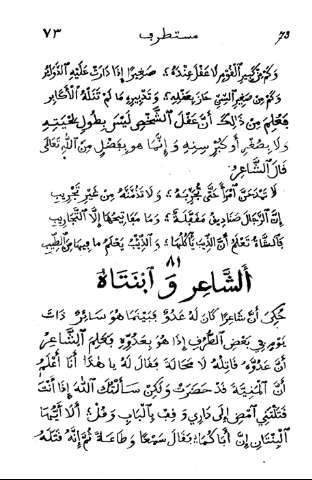 ٧٣ مستطرف 73
وَكَمْ مِنْ كَبِيرِ ٱلْقَوْمِ لَا عَقْلَ عِنْدَهُ ؛ صَغِيرًا إِذَا دَارَتْ عَلَيْهِ ٱلدَّوَائِرُ
وَكَمْ مِنْ صَغِيرِ ٱلسِّنِّ حَازَ بِعَقْلِهِ ؛ وَتَدْبِيرِهِ مَا لَمْ تَنَلْهُ ٱلْأَكَابِرُ
فَعُلِمَ مِنْ ذَالِكَ أَنَّ عَقْلَ ٱلشَّخْصِ لَيْسَ بِطُولِ لِحْيَتِهِ
وَلَا بِصُغْرِ أَوْ كِبْرِ سِنِّهِ وَإِنَّمَا هُوَ بِفَضْلٍ مِنَ ٱللَّهِ تَعَالَى
قَالَ ٱلشَّاعِرُ
لَا تَمْدَحَنَّ ٱمْرَأً حَتَّى تُجَرِّبَهُ ؛ وَلَا تَذُمَّنَّهُ مِنْ غَيْرِ تَجْرِيبِ
إِنَّ ٱلرِّجَالَ صَنَادِيقٌ مُقَفَّلَةٌ ؛ وَمَا مَفَاتِيحُهَا إِلَّا ٱلتَّجَارِيبُ
كَٱلشَّاةِ تَعْلَمُ أَنَّ ٱلذِّيبَ يَأْكُلُهَا ؛ وَٱلذِّيبُ يَعْلَمُ مَا فِيهَا مِنَ ٱلطِّيبِ
٨١
ٱلشَّاعِر وَ ٱبْنَتَاهُ
حُكِيَ أَنَّ شَاعِرًا كَانَ لَهُ عَدُوٌّ فَبَيْنَمَا هُوَ سَائِرٌ ذَاتَ
يَوْمٍ فِي بَعْضِ ٱلطُّرُقِ إِذَا هُوَ بِعَدُوِّهِ فَعَلِمَ ٱلشَّاعِرُ
أَنَّ عَدُوَّهُ قَاتِلُهُ لَا مَحَالَةَ فَقَالَ لَهُ يَا هَٰذَا أَنَا أَعْلَمُ
أَنَّ ٱلْمَنِيَّةَ قَدْ حَضَرَتْ وَلَكِنْ سَأَلْتُكَ ٱللَّهَ إِذَا أَنْتَ
قَتَلْتَنِي ٱمْضِ إِلَى دَارِي وَقِفْ بِٱلْبَابِ وَقُلْ ؛ أَلَا أَيُّهَا
ٱلْبِنْتَانِ إِنَّ أَبَاكُمَا ؛ فَقَالَ سَمْعًا وَطَاعَةً ثُمَّ إِنَّهُ قَتَلَهُ